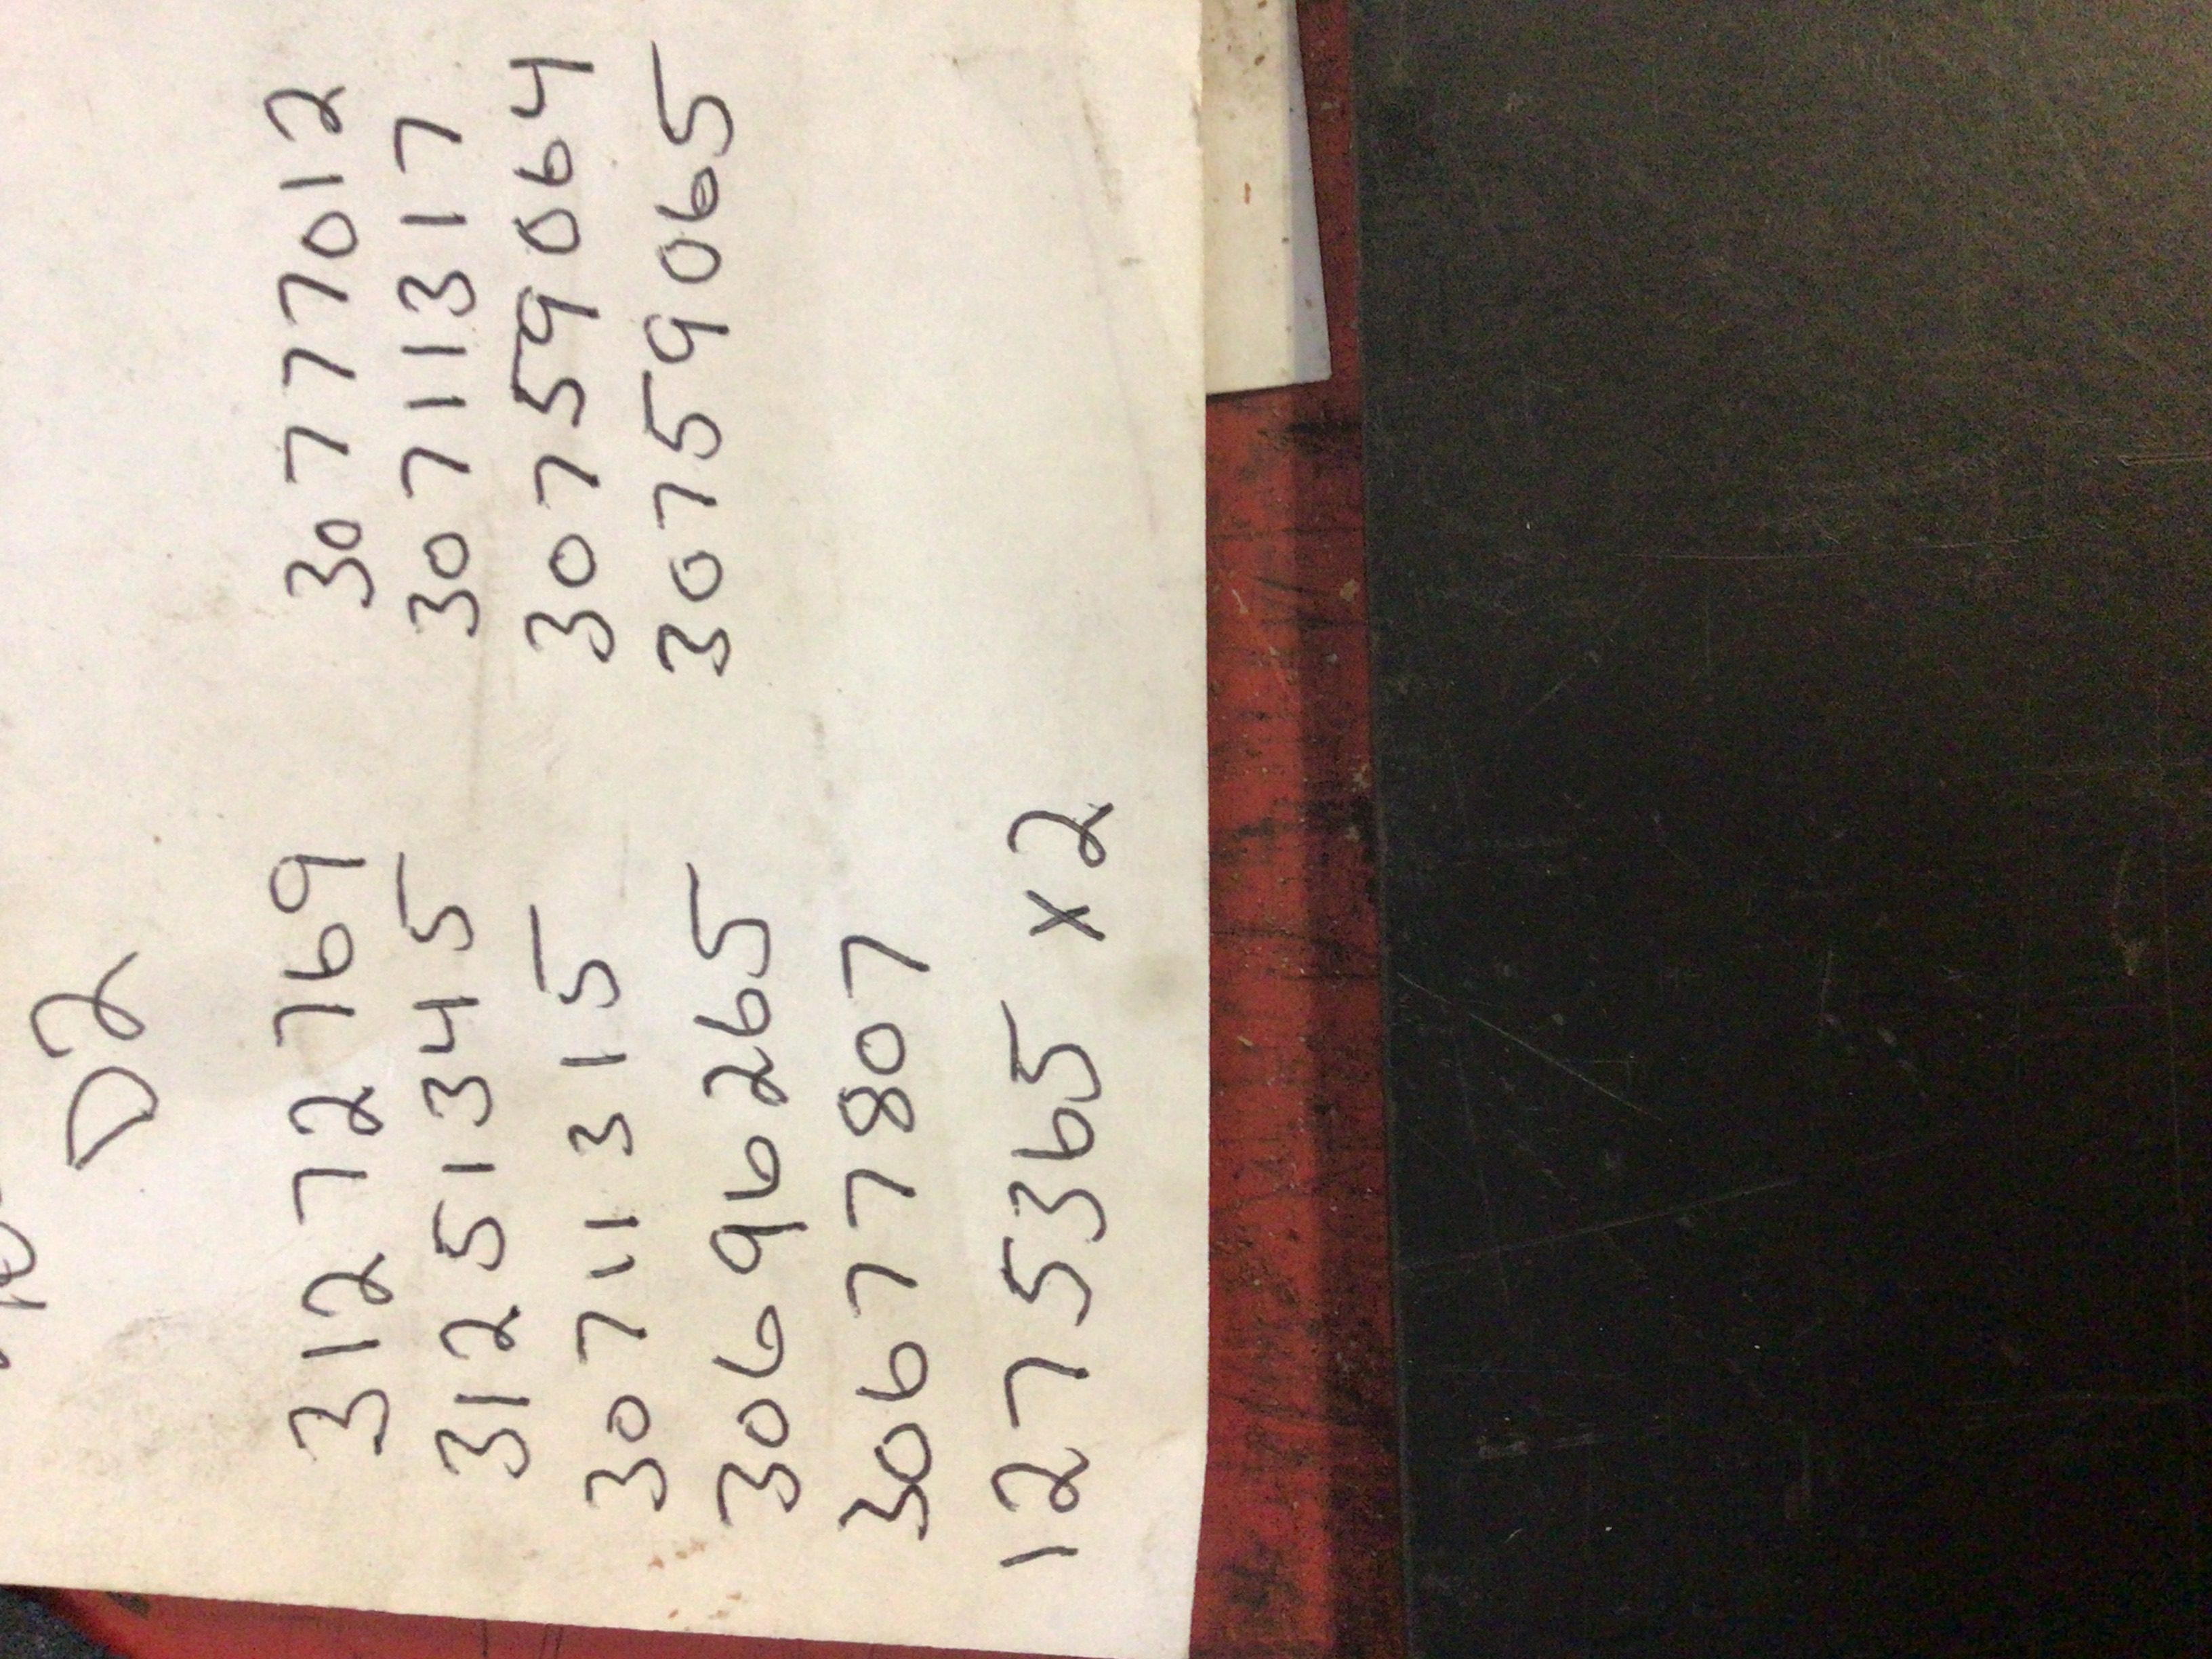 D2
312 72 769 307 77 012
312 51 345 307 11 317
307 11 315 307 59 064
306 96 265 307 59 065
306 77 807
127 5365 x2